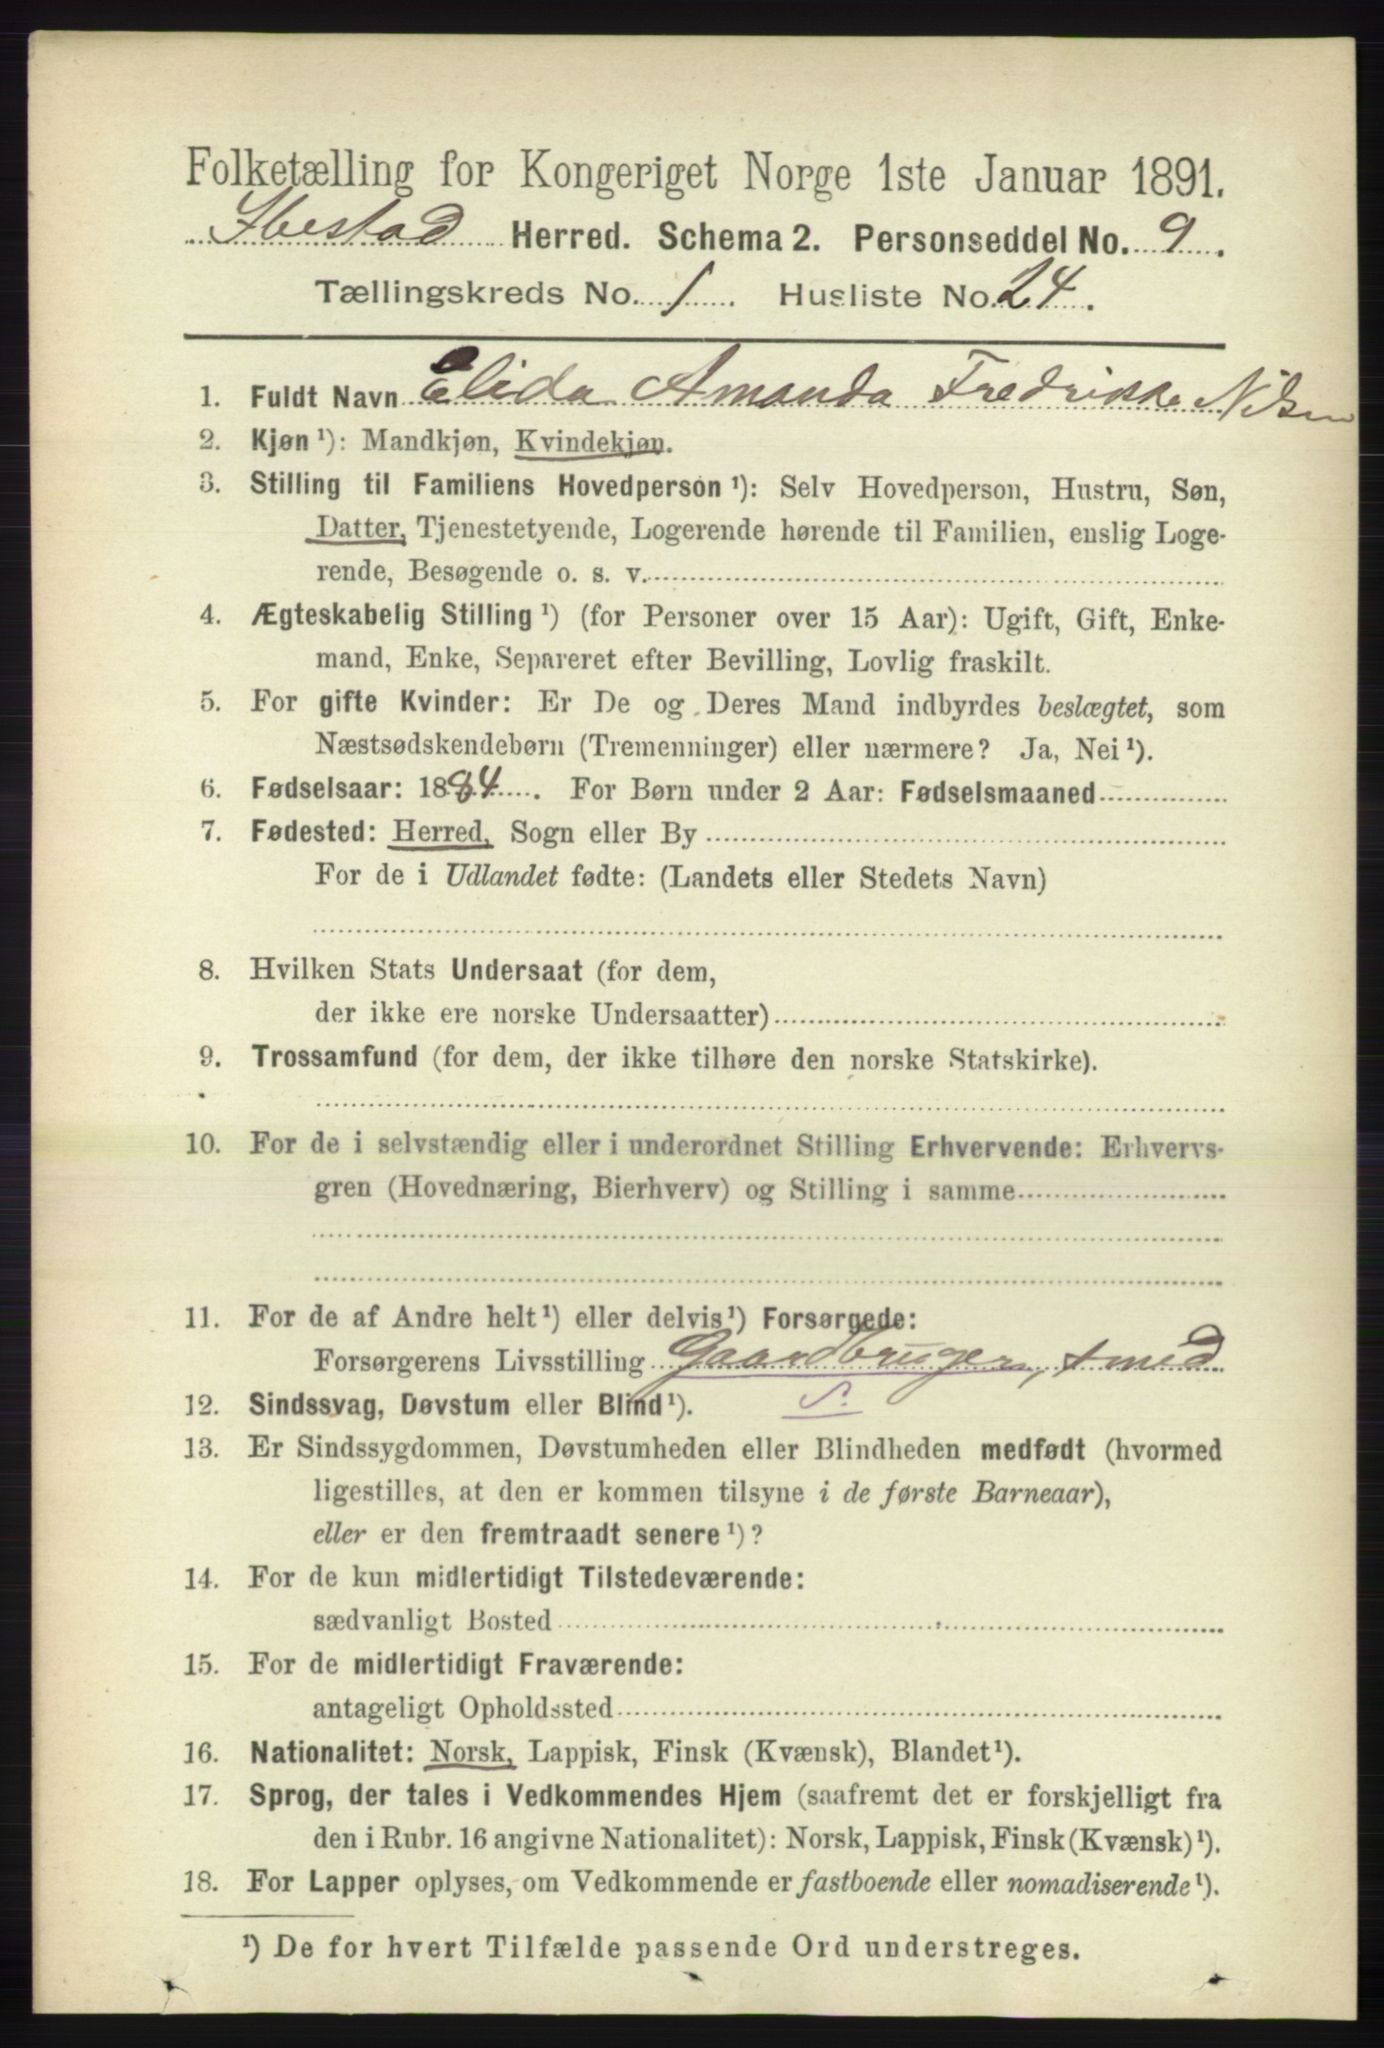 Folketælling for Kongeriget Norge 1ste Januar 1891.
Ibestad Herred. Schema 2. Personseddel No. 9.
Tællingskreds No. 1. Husliste No. 24.
1. Fuldt Navn Elida Amanda Fredrikke Nilsen
2. Kjøn ¹): Mandkjøn, Kvindekjøn.
3. Stilling til Familiens Hovedperson ¹): Selv Hovedperson, Hustru, Søn,
Datter, Tjenestetyende, Logerende hørende til Familien, enslig Loge-
rende, Besøgende o. s. v.
4. Ægteskabelig Stilling ¹) (for Personer over 15 Aar): Ugift, Gift, Enke-
mand, Enke, Separeret efter Bevilling, Lovlig fraskilt.
5. For gifte Kvinder: Er De og Deres Mand indbyrdes beslægtet, som
Næstsødskendebørn (Tremenninger) eller nærmere? Ja, Nei ¹).
6. Fødselsaar: 1884. For Børn under 2 Aar: Fødselsmaaned
7. Fødested: Herred, Sogn eller By
For de i Udlandet fødte: (Landets eller Stedets Navn)
8. Hvilken Stats Undersaat (for dem,
der ikke ere norske Undersaatter)
9. Trossamfund (for dem, der ikke tilhøre den norske Statskirke).
10. For de i selvstændig eller i underordnet Stilling Erhvervende: Erhvervs-
gren (Hovednæring, Bierhverv) og Stilling i samme
11. For de af Andre helt ¹) eller delvis ¹) Forsørgede:
Forsørgerens Livsstilling Gaardbruger, smed
S.
12. Sindssvag, Døvstum eller Blind ¹).
13. Er Sindssygdommen, Døvstumheden eller Blindheden medfødt (hvormed
ligestilles, at den er kommen tilsyne i de første Barneaar),
eller er den fremtraadt senere ¹)?
14. For de kun midlertidigt Tilstedeværende:
sædvanligt Bosted
15. For de midlertidigt Fraværende:
antageligt Opholdssted
16. Nationalitet: Norsk, Lappisk, Finsk (Kvænsk), Blandet ¹).
17. Sprog, der tales i Vedkommendes Hjem (saafremt det er forskjelligt fra
den i Rubr. 16 angivne Nationalitet): Norsk, Lappisk, Finsk (Kvænsk) ¹).
18. For Lapper oplyses, om Vedkommende er fastboende eller nomadiserende ¹).
¹) De for hvert Tilfælde passende Ord understreges.